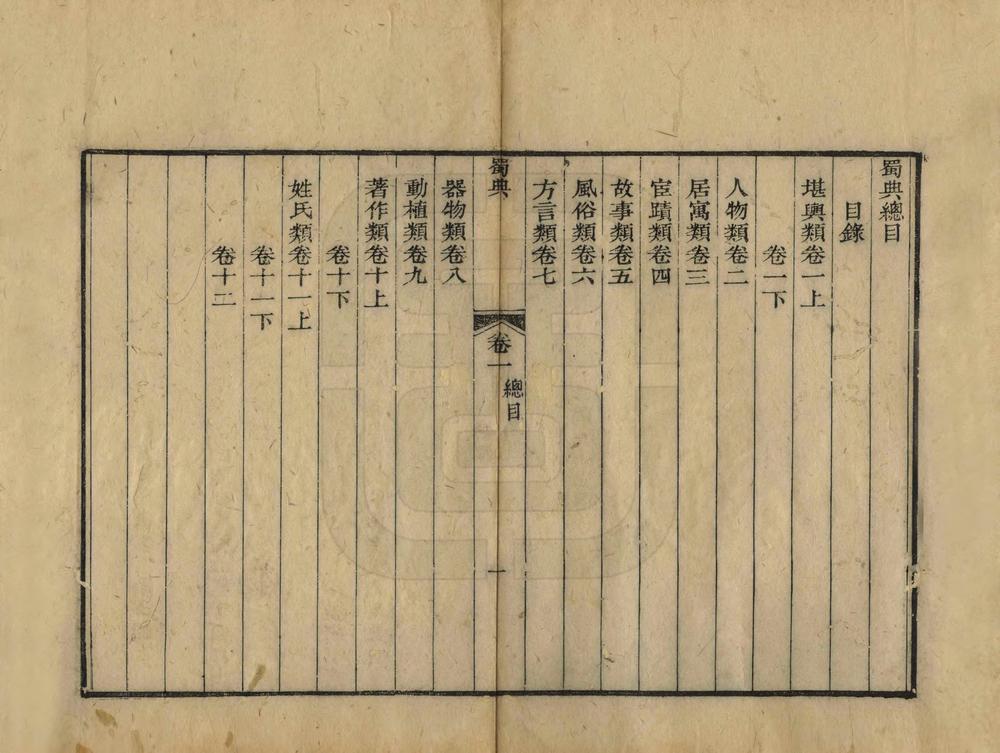 蜀典總目
目錄
堪輿類卷一上
卷一下
人物類卷二
居寓類卷三
宦蹟類卷四
故事類卷五
風俗類卷六
方言類卷七
蜀典
卷一
總目
一
器物類卷八
動植類卷九
著作類卷十上
卷十下
姓氏類卷十一上
卷十一下
卷十二